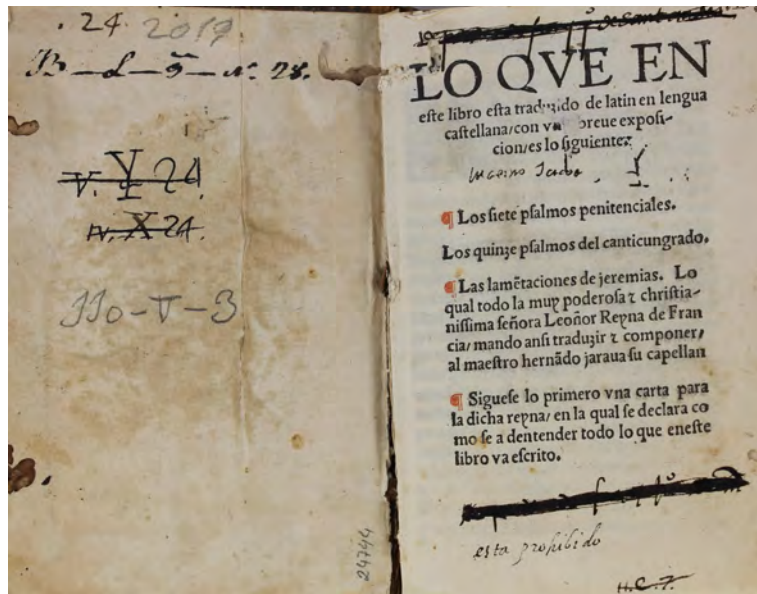 . 24 2019
B–L–9–nº 28.
V. Y 24
IV. X 24.
IIo–V–3
44742
LO QVE EN
eſte libro eſta traduzido de latin en lengua
caſtellana/con vna breue expoſi-
cion/es lo ſiguiente:
¶ Los ſiete pſalmos penitenciales.
Los quinze pſalmos del canticungrado.
¶ Las lamẽtaciones de jeremias. Lo
qual todo la muy poderoſa ⁊ chriſtia-
niſſima ſeñora Leoñor Reyna de Fran
cia/ mando anſi traduzir ⁊ componer/
al maeſtro hernãdo jaraua ſu capellan
¶ Sigueſe lo primero vna carta para
la dicha reyna/ en la qual ſe declara co
mo ſe a dentender todo lo que eneſte
libro va eſcrito.
esta prohibido
H.C.7.